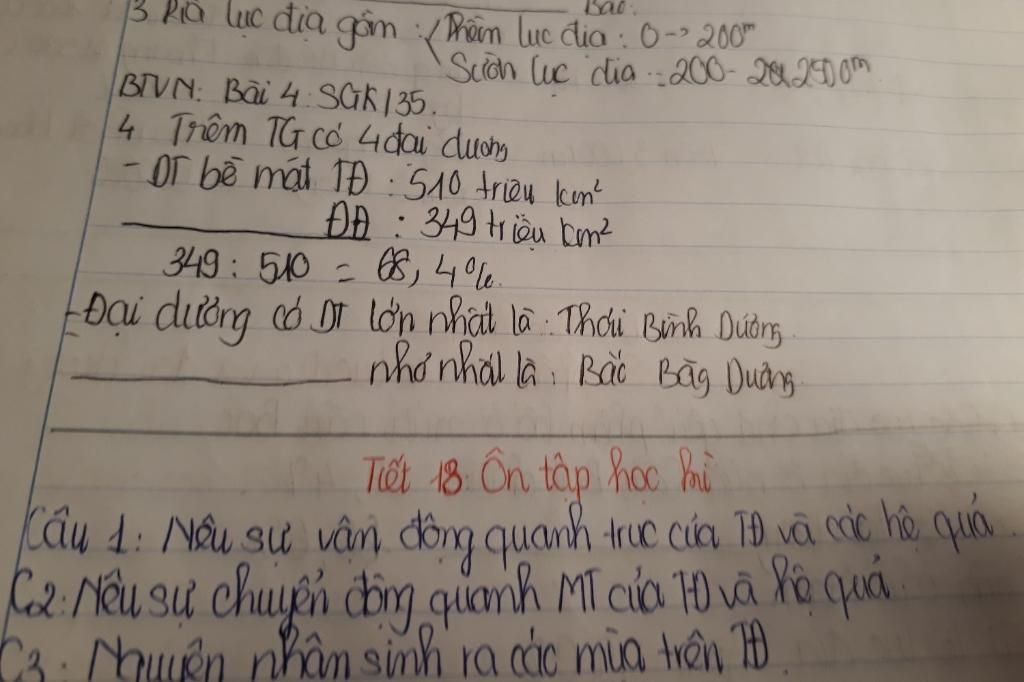 Bắc.
3 Rìa lục địa gồm: Thềm lục địa: 0 -> 200m
Sườn lục địa: 200 - 2500m
BTVN: Bài 4: SGK/35.
4 Trêm TG có 4 đại dương
- DT bề mặt TĐ: 510 triệu km²
ĐD: 349 triệu km²
349: 510 = 68,4%.
- Đại dương có DT lớn nhất là: Thái Bình Dương
nhỏ nhất là: Bắc Băg Dương
Tiết 18: Ôn tập học kì
Câu 1: Nêu sự vận động quanh trục của TĐ và các hệ quả.
C2: Nêu sự chuyển động quanh MT của TĐ và hệ quả.
C3: Nguyên nhân sinh ra các mùa trên TĐ